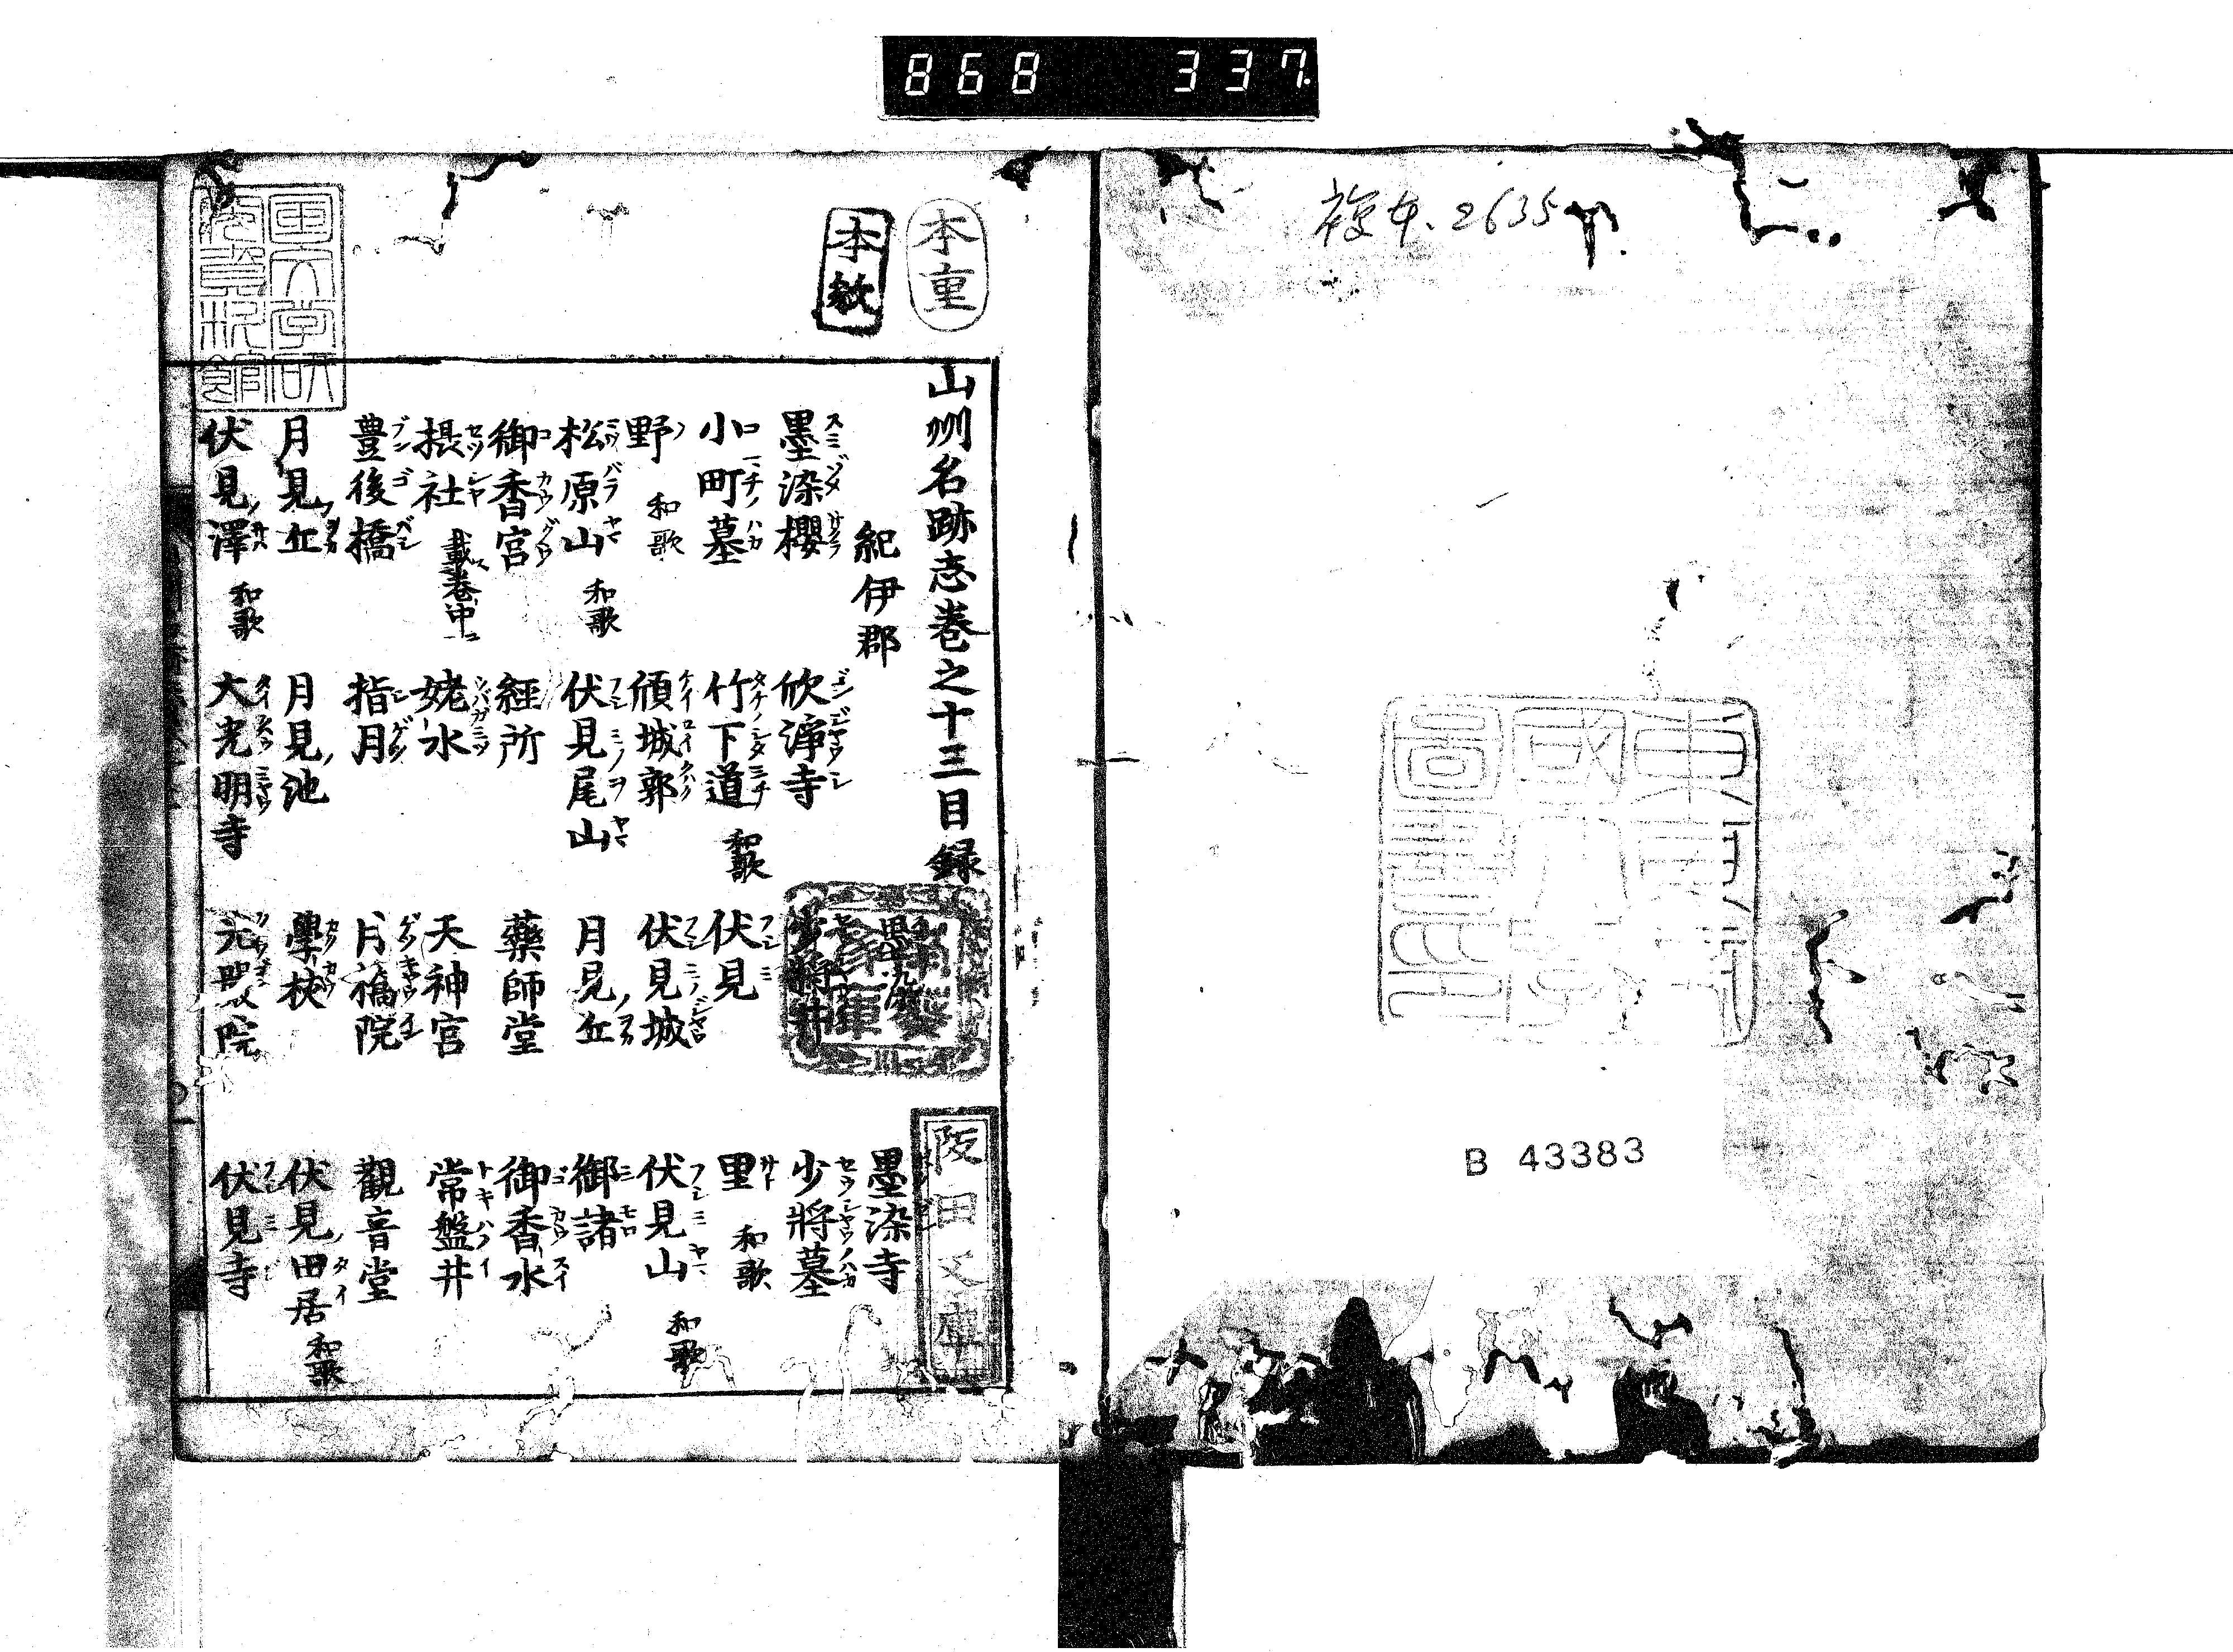 868 337
複本.2635
B 43383
本重
本教
山州名跡志巻之十三目録
紀伊郡
墨染寺
墨染櫻 欣淨寺 少將井 少將墓
小町墓 竹下道 和歌 伏見 里 和歌
野 和歌 傾城郭 伏見城 伏見山 和歌
松原山 和歌 伏見尾山 月見丘 御諸
御香宮 經所 藥師堂 御香水
摂社 載巻中 姥水 天神宮 常盤井
豊後橋 指月 月橋院 觀音堂
月見丘 月見池 學校 伏見田居 和歌
伏見澤 和歌 大光明寺 伏見寺
阪田文庫